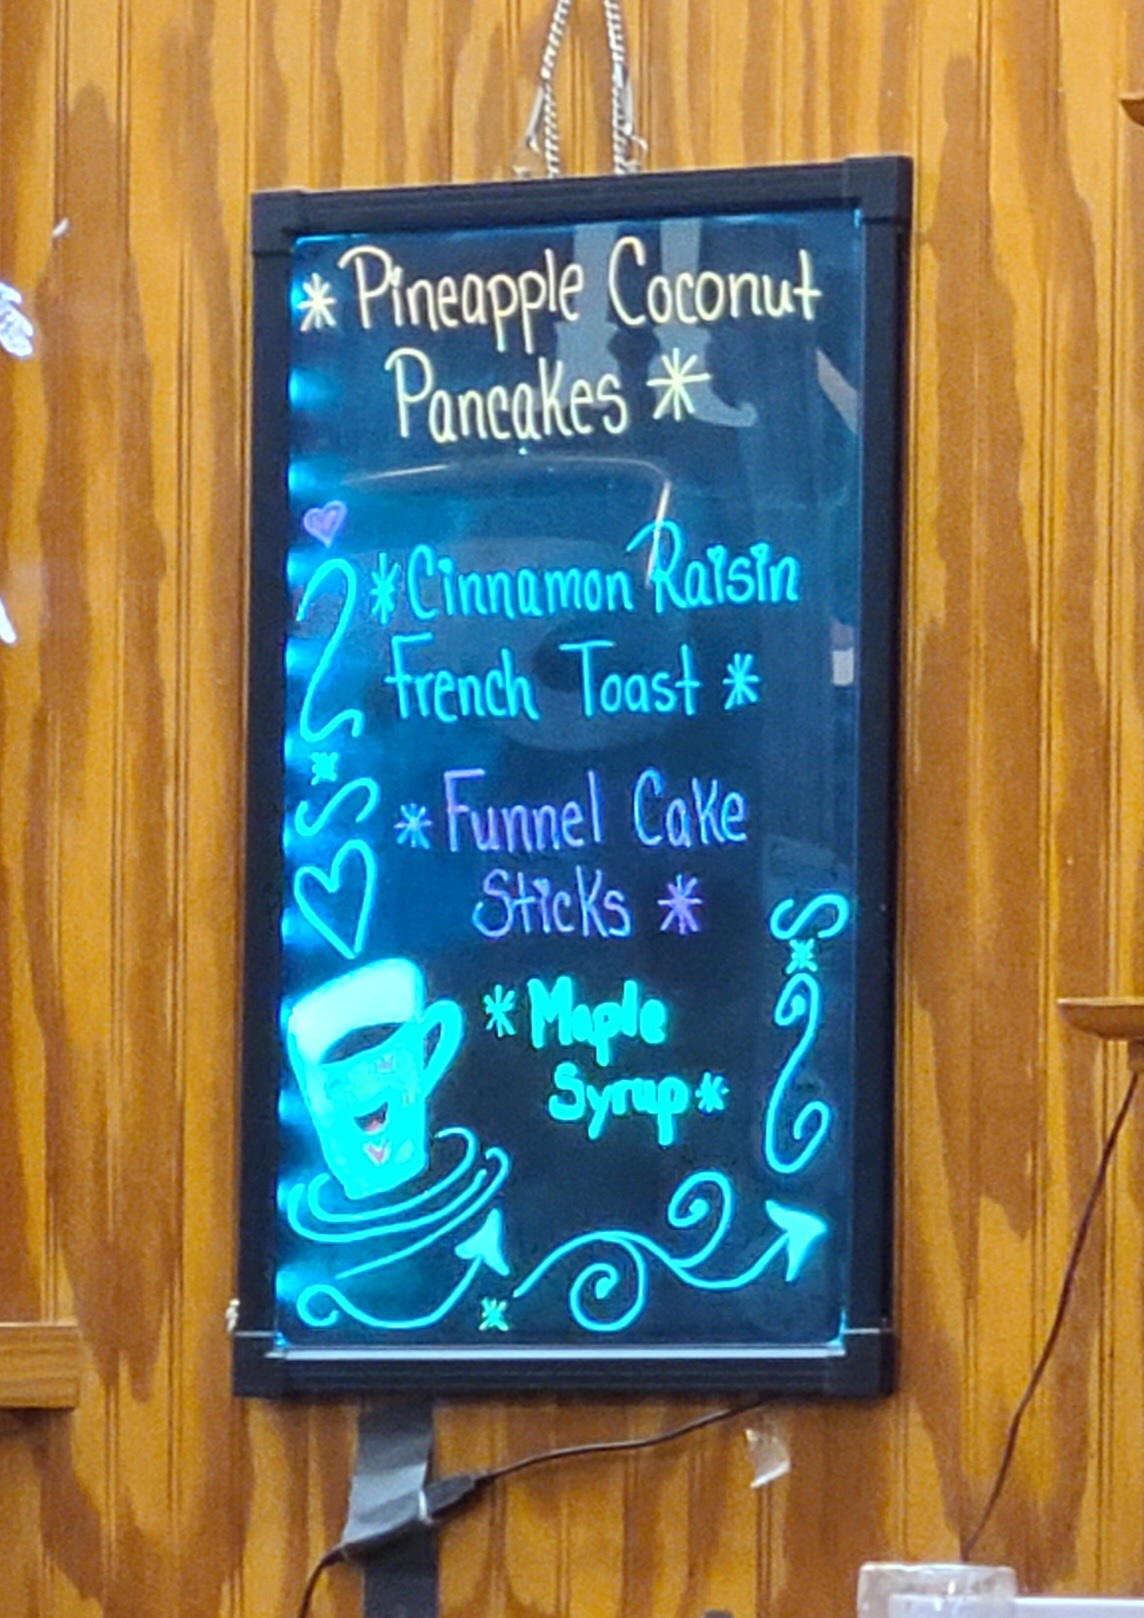 * Pineapple Coconut
Pancakes *
* Cinnamon Raisin
French Toast *
* Funnel Cake
Sticks *
* Maple
Syrup *